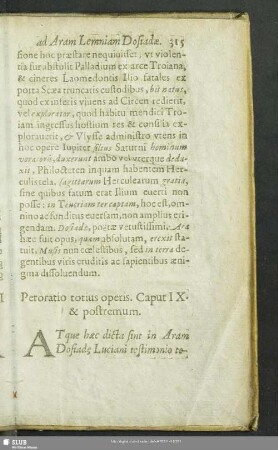 ad Aram Lemniam Dosiadæ. 315
sione hoc præstare nequiuisset, vt violen-
tia fur abstulit Palladium ex arce Troiana,
& cineres Laomedontis Ilio fatales ex
porta Scæa truncatis custodibus, bis natus,
quod ex inferis viuens ad Circen redierit,
vel explorator, quod habitu mendici Tro-
iam ingressus hostium res & consilia ex-
plorauerit, & Vlysse administro vtens in
hoc opere Iupiter filius Saturni hominum
voratoris, duxerunt ambo vel uterque dedu-
xit, Philocteten inquam habentem Her-
culis tela, sagittarum Herculearum gratia,
sine quibus fatum erat Ilium euerti non
posse: in Teucriam ter captam, hoc est, om-
nino ac funditus euersam, non amplius eri-
gendam. Dosiadæ, poëtæ vetustissimi, Ara
hæc fuit opus, quam absolutam, erexit sta-
tuit, Musis non cœlestibus, sed in terra de-
gentibus viris eruditis ac sapientibus æni-
gma dissoluendum.
Peroratio totius operis. Caput IX.
& postremum.
ATque hæc dicta sint in Aram
Dosiadę Luciani testimonio te-
SLUB